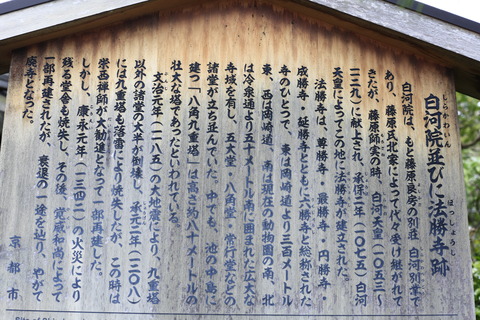 白河院並びに法勝寺跡
しらかわいん
ほっしょうじ
白河院は、もと藤原良房の別荘「白河別業」で
あり、藤原氏北家によって代々受け継がれて
きたが、藤原師実の時、白河天皇(一〇五三〜
一一二九)に献上され、承保二年(一〇七五)白河
天皇によってこの地に法勝寺が建立された。
法勝寺は、尊勝寺・最勝寺・円勝寺・
成勝寺・延勝寺とともに六勝寺と総称された
寺のひとつで、東は岡崎道より三百メートル
東、西は岡崎道、南は現在の動物園の南、北
は冷泉通より五十メートル南に囲まれた広大な
寺域を有し、五大堂・八角堂・常行堂などの
諸堂が立ち並んでいた。中でも、池の中島に
建つ「八角九重塔」は高さ約八十メートルの
壮大な塔であったといわれている。
文治元年(一一八五)の大地震により、九重塔
以外の諸堂の大半が倒壊し、承元二年(一二〇八)
には九重塔も落雷により焼失したが、この時は
栄西禅師が大勧進となって一部再建した。
しかし、康永元年(一三四二)の火災により
残る堂舎も焼失し、その後、覚威和尚によって
一部再建されたが、衰退の一途を辿り、やがて
廃寺となった。
京都市